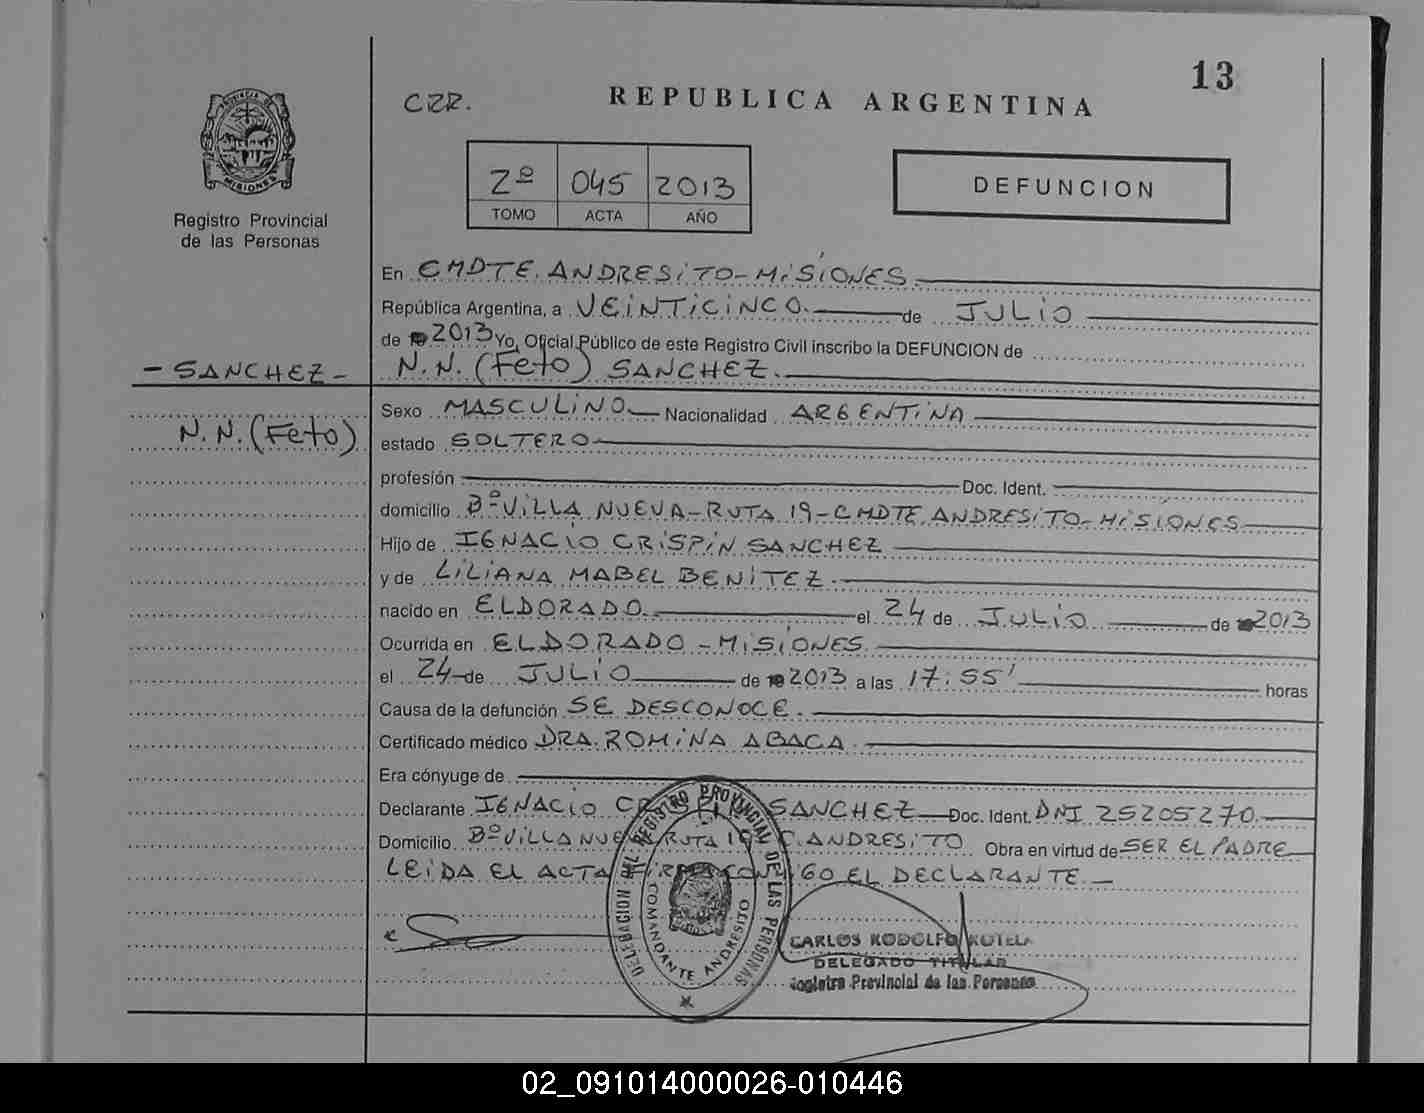 13
CZR.
REPUBLICA ARGENTINA
PROVINCIA DE
MISIONES
Registro Provincial
de las Personas
2º 045 2013
TOMO ACTA AÑO
DEFUNCION
En CMDTE. ANDRESITO-MISIONES
República Argentina, a VEINTICINCO de JULIO
de 2013 Yo, Oficial Público de este Registro Civil inscribo la DEFUNCION de
- SANCHEZ - N.N. (Feto) SANCHEZ.
Sexo MASCULINO Nacionalidad ARGENTINA
N.N. (Feto)
estado SOLTERO
profesión Doc. Ident.
domicilio Bº VILLA NUEVA-RUTA 19-CMDTE ANDRESITO-MISIONES
Hijo de IGNACIO CRISPIN SANCHEZ
y de LILIANA MABEL BENITEZ.
nacido en ELDORADO. el 24 de JULIO de 2013
Ocurrida en ELDORADO - MISIONES.
el 24 de JULIO de 2013 a las 17:55' horas
Causa de la defunción SE DESCONOCE.
Certificado médico DRA. ROMINA ABACA.
Era cónyuge de
Declarante IGNACIO CRISPIN SANCHEZ Doc. Ident. DNI 25205270.
Domicilio Bº VILLA NUEVA RUTA 19 C. ANDRESITO Obra en virtud de SER EL PADRE
LEIDA EL ACTA FIRMA CONMIGO EL DECLARANTE
DELEGACION DEL REGISTRO PROVINCIAL DE LAS PERSONAS
COMANDANTE ANDRESITO
CARLOS RODOLFO KOTELA
DELEGADO TITULAR
Registro Provincial de las Personas
02_091014000026-010446